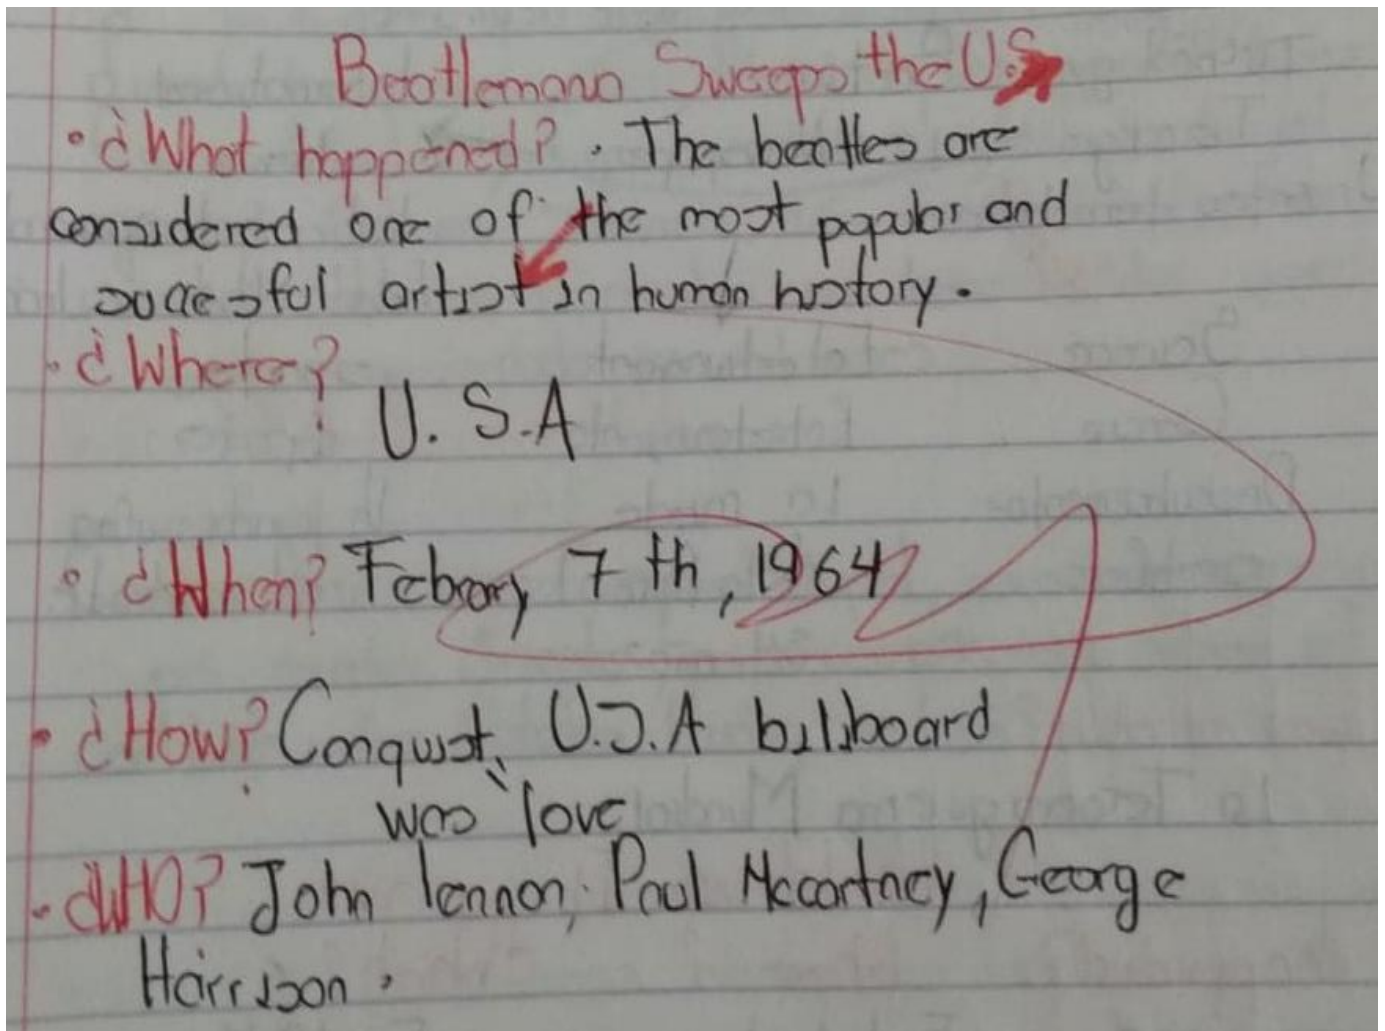 Beatlemana Sweeps the U.S
• ¿What happened? . The beatles are
considered one of the most popular and
succesful artist in human history.
• ¿Where?
U. S.A
• ¿When? Febrary 7 th, 1964
• ¿How? Conquist, U.S.A billboard
was love
• ¿WHO? John lennon, Paul Mccartney, George
Harrison.